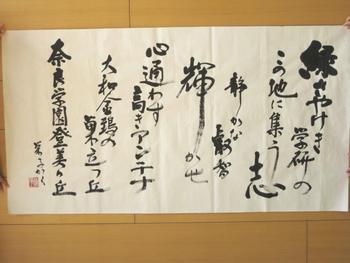 緑さやけき
学研の
この地に集う
志
静かな
叡智
輝かせ
心通わす
高きアンテナ
大和金鵄の
巣立つ丘
奈良学園登美ヶ丘